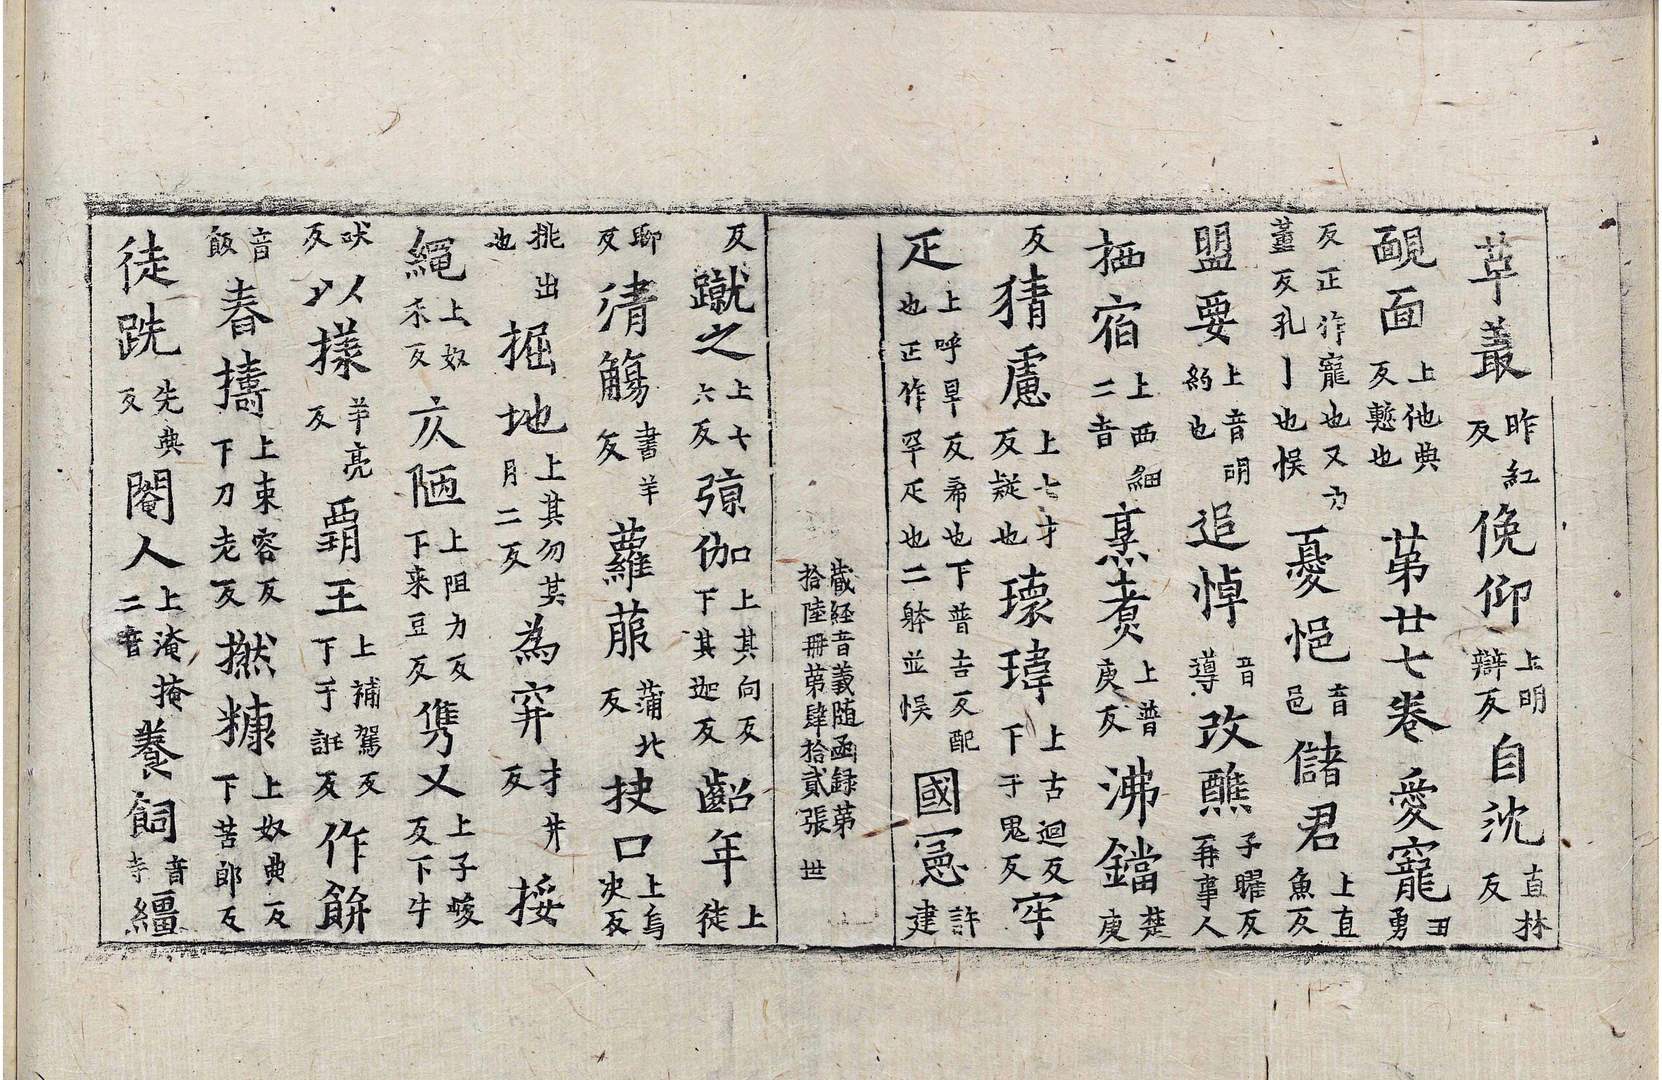 草叢昨紅反俛仰上明辯反自沈直林反
靦面上他典反慙也第廿七卷愛寵丑勇
反正作寵也又力董反孔丨也悮憂悒音邑儲君上直魚反
盟要上音明約也追悼音導改醮子曜反再事人
栖宿上西細二音烹煑上普庚反沸鐺楚庚
反猜慮上七才反疑也瓌瑋上古迴反下于鬼反罕
疋上呼早反希也下普吉反配也正作罕疋也二躰並悮國𡨥許建
藏經音義随函録第拾陸冊第肆拾貳張 世
反蹴之上七六反弶伽上其向反下其迦反齠年上徒
聊反清觴書羊反蘿菔蒲北反抉口上烏決反
挑出也掘地上其勿其月二反為穽才井反挼
繩上奴禾反仄陋上阻力反下来豆反雋乂上子峻反下牛
吠反以樣羊亮反覇王上補駕反下于誑反作餅
音飯舂擣上束容反下刀老反撚糠上奴典反下苦郎反
徒跣先典反閹人上淹掩二音養飼音寺繮